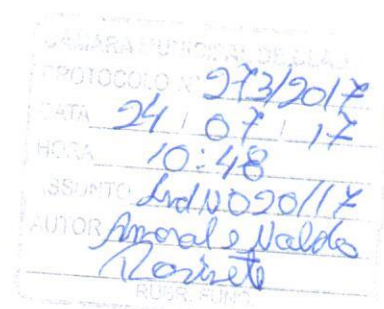 CÂMARA MUNICIPAL DE
PROTOCOLO Nº 273/2017
DATA 24 / 07 / 17
HORA 10:48
ASSUNTO Ind Nº 020/17
AUTOR Amoral e Naldo
RUBR. FUNC.